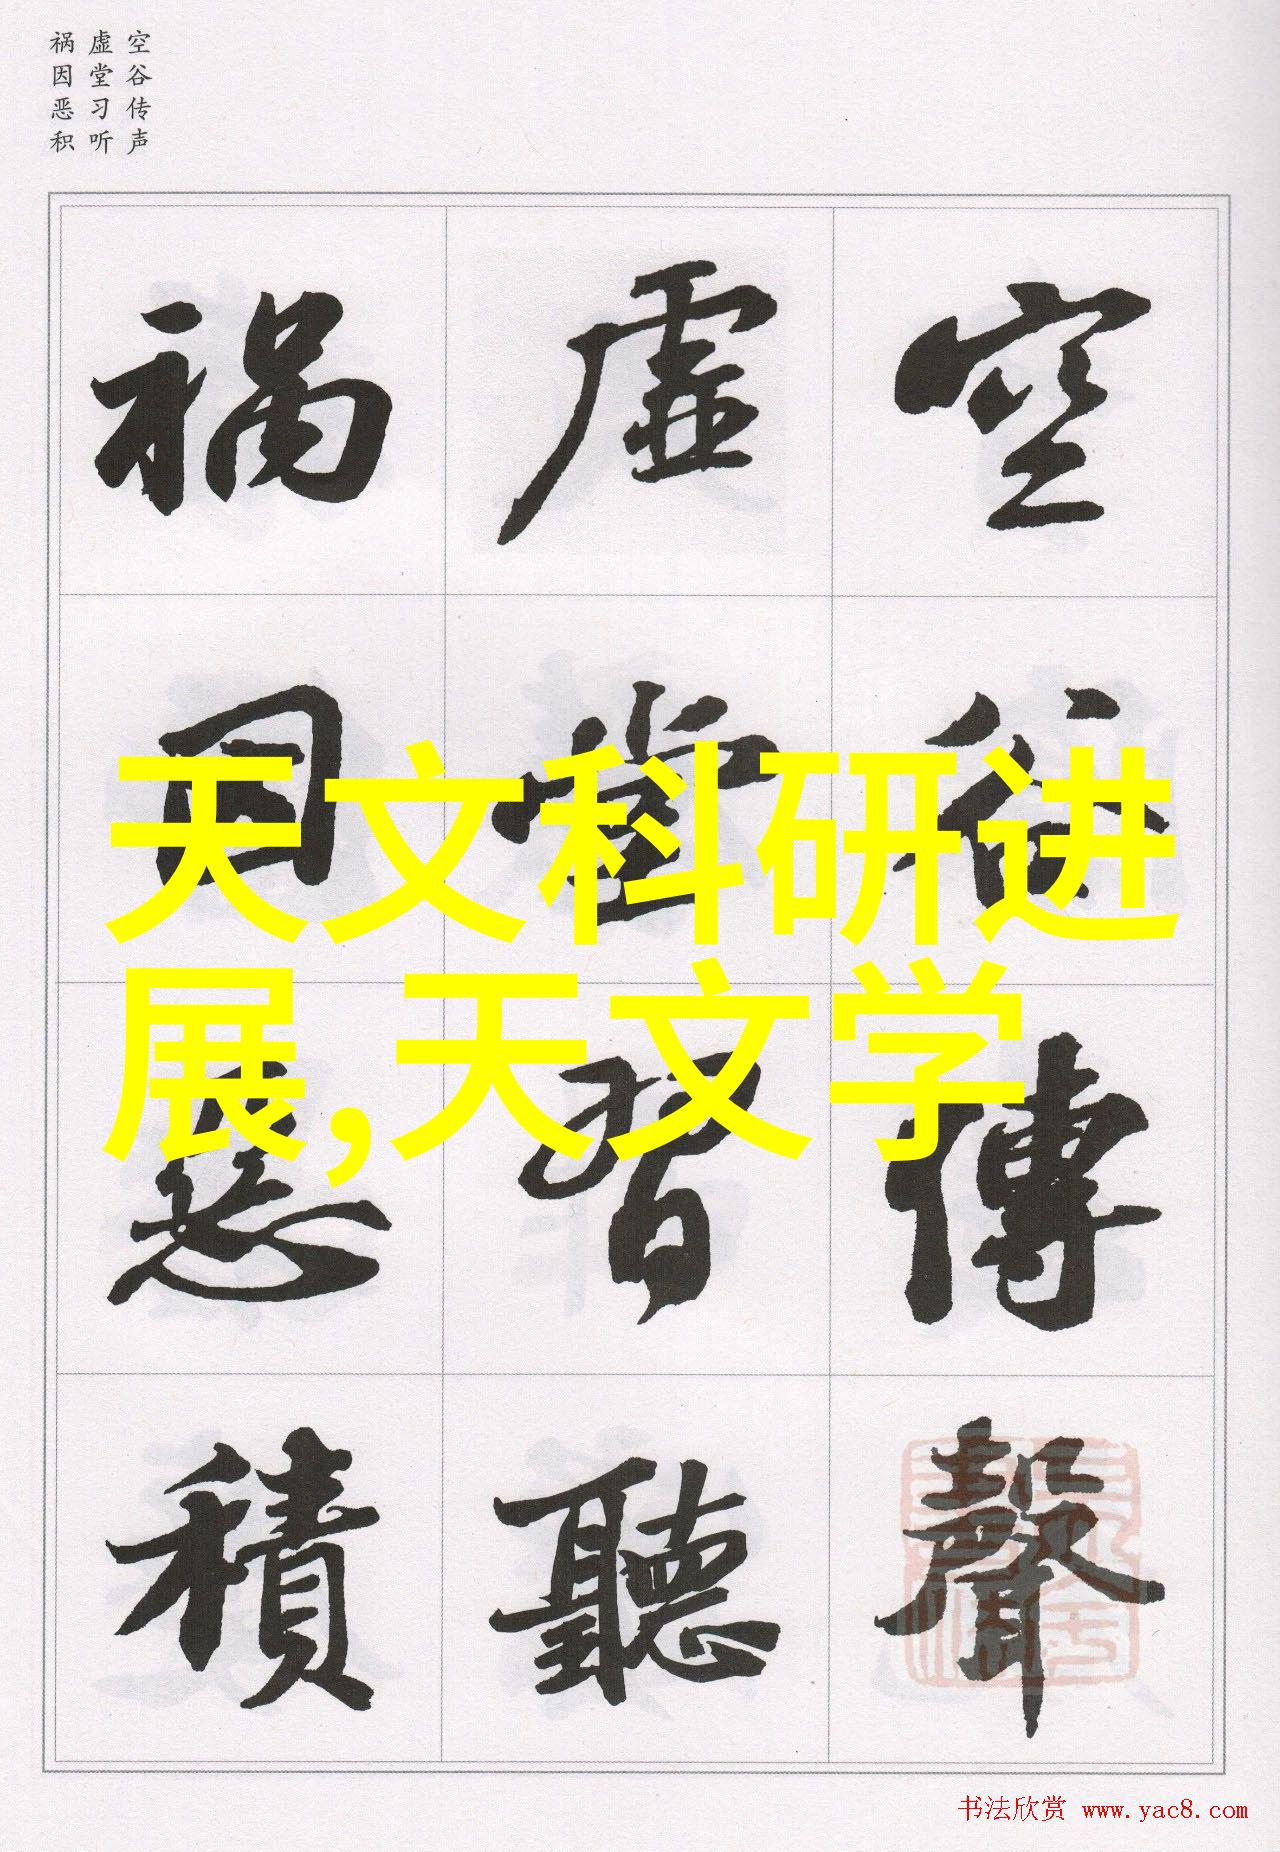 空谷传声
虚堂习听
祸因恶积
空谷傳聲
虛堂習聽
禍因惡積
天文科研进
展,天文学
书法欣赏 www.yac8.com